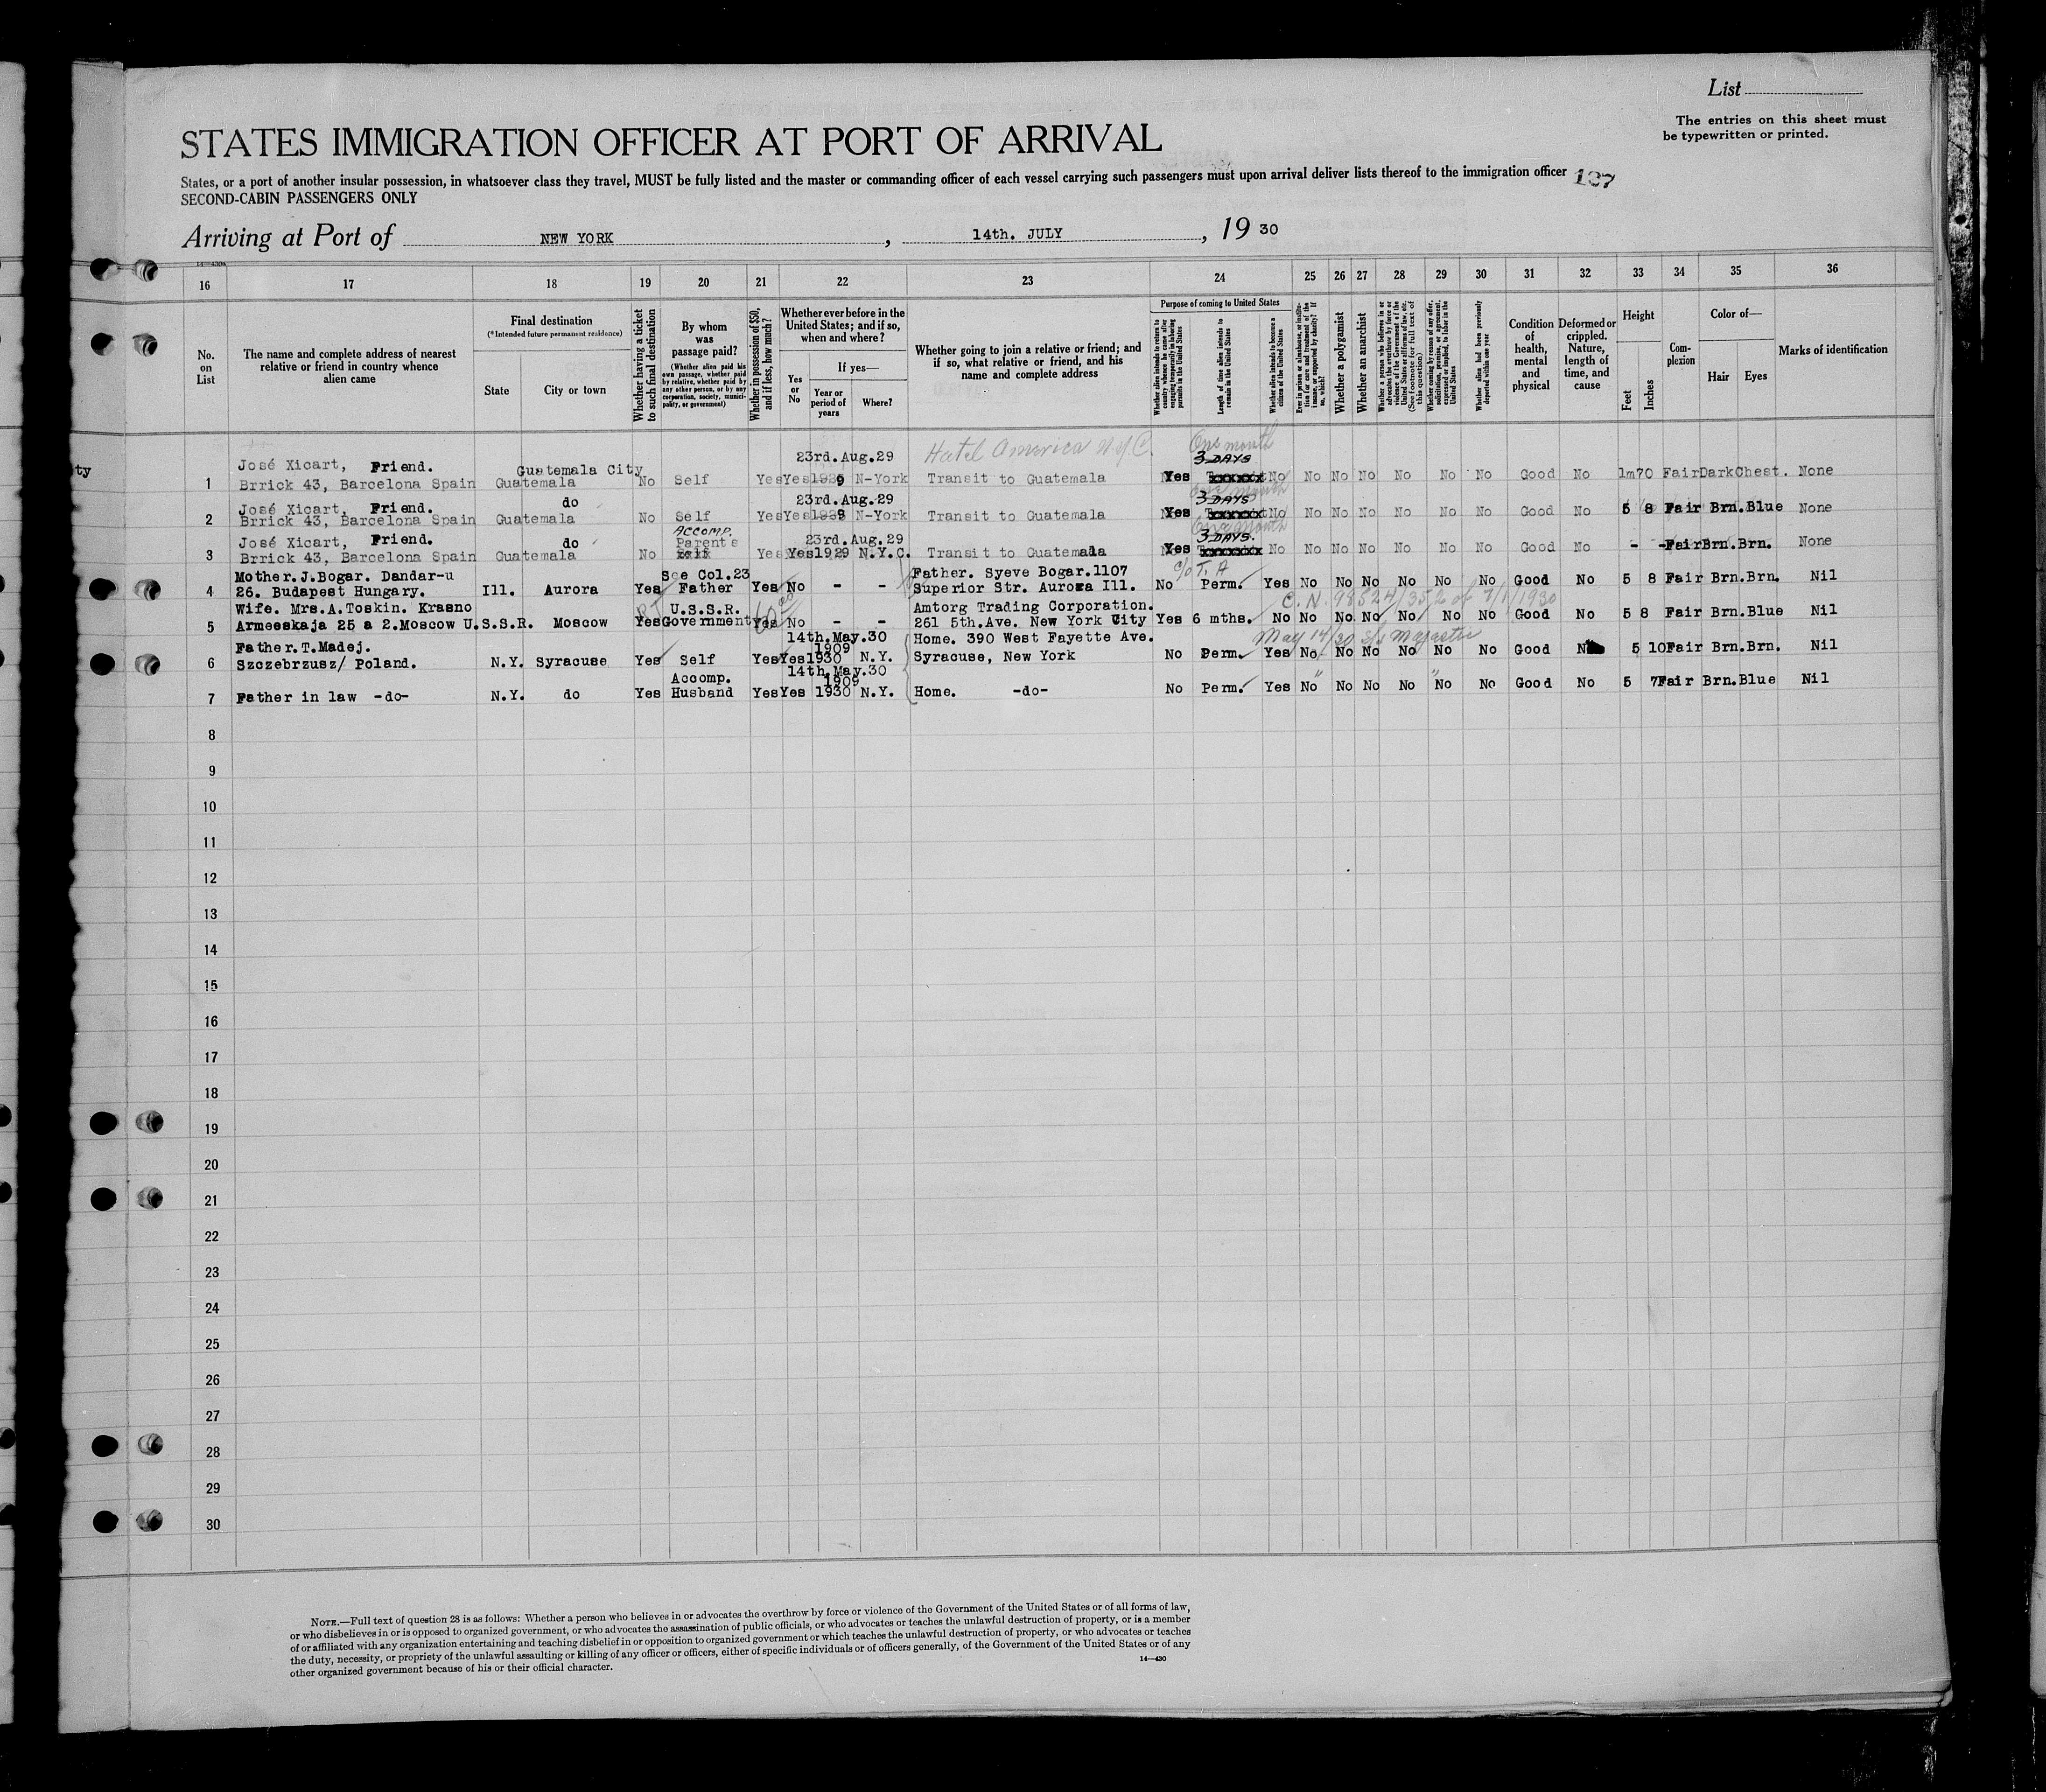 List
The entries on this sheet must
be typewritten or printed.
STATES IMMIGRATION OFFICER AT PORT OF ARRIVAL
States, or a port of another insular possession, in whatsoever class they travel, MUST be fully listed and the master or commanding officer of each vessel carrying such passengers must upon arrival deliver lists thereof to the immigration officer
SECOND-CABIN PASSENGERS ONLY
Arriving at Port of NEW YORK, 14th. JULY, 19 30
16 17 18 19 20 21 22 23 24 25 26 27 28 29 30 31 32 33 34 35 36
No. on List
The name and complete address of nearest
relative or friend in country whence
alien came
Final destination
(*Intended future permanent residence)
State City or town
Whether having a ticket
to such final destination
By whom
was
passage paid?
(Whether alien paid his
own passage, whether paid
by relative, whether paid by
any other person, or by any
corporation, society, munici-
pality, or government)
Whether in possession of $50,
and if less, how much?
Whether ever before in the
United States; and if so,
when and where?
Yes or No
If yes—
Year or
period of
years
Where?
Whether going to join a relative or friend; and
if so, what relative or friend, and his
name and complete address
Purpose of coming to United States
Whether alien intends to return to
country whence he came after
engaging temporarily in laboring
pursuits in the United States
Length of time alien intends to
remain in the United States
Whether alien intends to become a
citizen of the United States
Ever in prison or almshouse, or institu-
tion for care and treatment of the
insane, or supported by charity? If
so, which?
Whether a polygamist
Whether an anarchist
Whether a person who believes in or
advocates the overthrow by force or
violence of the Government of the
United States or all forms of law, etc.
(See footnote for full text of
this question)
Whether coming by reason of any offer,
solicitation, promise, or agreement,
expressed or implied, to labor in the
United States
Whether alien had been previously
deported within one year
Condition
of
health,
mental
and
physical
Deformed or
crippled.
Nature,
length of
time, and
cause
Height
Feet Inches
Com-
plexion
Color of—
Hair Eyes
Marks of identification
ty
Hotel America N.Y.C. One month
José Xicart, Friend. Guatemala City 23rd.Aug.29 3 DAYS
1 Brrick 43, Barcelona Spain Guatemala No Self Yes Yes N-York Transit to Guatemala Yes No No No No No No No Good No 1m70 Fair Dark Chest. None
José Xicart, Friend. do 23rd.Aug.29 3 DAYS
2 Brrick 43, Barcelona Spain Guatemala No Self Yes Yes 1929 N-York Transit to Guatemala Yes No No No No No No No Good No 5 8 Fair Brn. Blue None
ACCOMP. One month
José Xicart, Friend. do Parents 23rd.Aug.29 3 DAYS.
3 Brrick 43, Barcelona Spain Guatemala No Yes Yes 1929 N.Y.C. Transit to Guatemala Yes No No No No No No No Good No - - Fair Brn. Brn. None
Mother.J.Bogar. Dandar-u See Col.23 Father. Syeve Bogar.1107 c/o T. A
4 26. Budapest Hungary. Ill. Aurora Yes Father Yes No - - Superior Str. Aurora Ill. No Perm. Yes No No No No No No Good No 5 8 Fair Brn. Brn. Nil
Wife. Mrs.A.Toskin. Krasno U.S.S.R. Amtorg Trading Corporation.
5 Armeeskaja 25 a 2.Moscow U.S.S.R. Moscow Yes Government Yes No - - 261 5th.Ave. New York City Yes 6 mths. No No No No No No No Good No 5 8 Fair Brn. Blue Nil
Father.T.Madej. 14th.May.30 1909 Home. 390 West Fayette Ave. May 14/30 S/S Majestic
6 Szczebrzusz/ Poland. N.Y. Syracuse Yes Self Yes Yes 1930 N.Y. Syracuse, New York No Perm. Yes No No No No No No Good 5 10 Fair Brn. Brn. Nil
Accomp. 14th.May.30 1909
7 Father in law -do- N.Y. do Yes Husband Yes Yes 1930 N.Y. Home. -do- No Perm. Yes No No No No No No Good No 5 7 Fair Brn. Blue Nil
8
9
10
11
12
13
14
15
16
17
18
19
20
21
22
23
24
25
26
27
28
29
30
NOTE.—Full text of question 28 is as follows: Whether a person who believes in or advocates the overthrow by force or violence of the Government of the United States or of all forms of law,
or who disbelieves in or is opposed to organized government, or who advocates the assassination of public officials, or who advocates or teaches the unlawful destruction of property, or is a member
of or affiliated with any organization entertaining and teaching disbelief in or opposition to organized government or which teaches the unlawful destruction of property, or who advocates or teaches
the duty, necessity, or propriety of the unlawful assaulting or killing of any officer or officers, either of specific individuals or of officers generally, of the Government of the United States or of any
other organized government because of his or their official character.
14—430